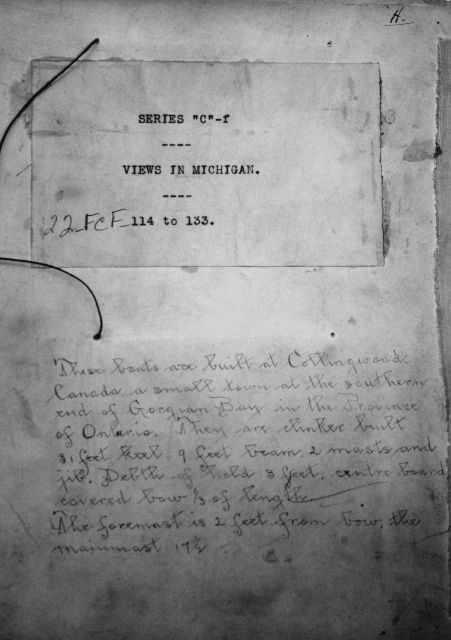 H.
SERIES "C"-f
----
VIEWS IN MICHIGAN.
----
22-FCF-114 to 133.
These boats are built at Collingwood
Canada a small town at the southern
end of Gorgian Bay in the Province
of Ontario. They are clinker built
31 feet keel. 9 feet beam. 2 masts and
jib. Debth of hold 3 feet. centre board
covered bow ⅓ of length.
The foremast is 2 feet from bow, the
mainmast 17½